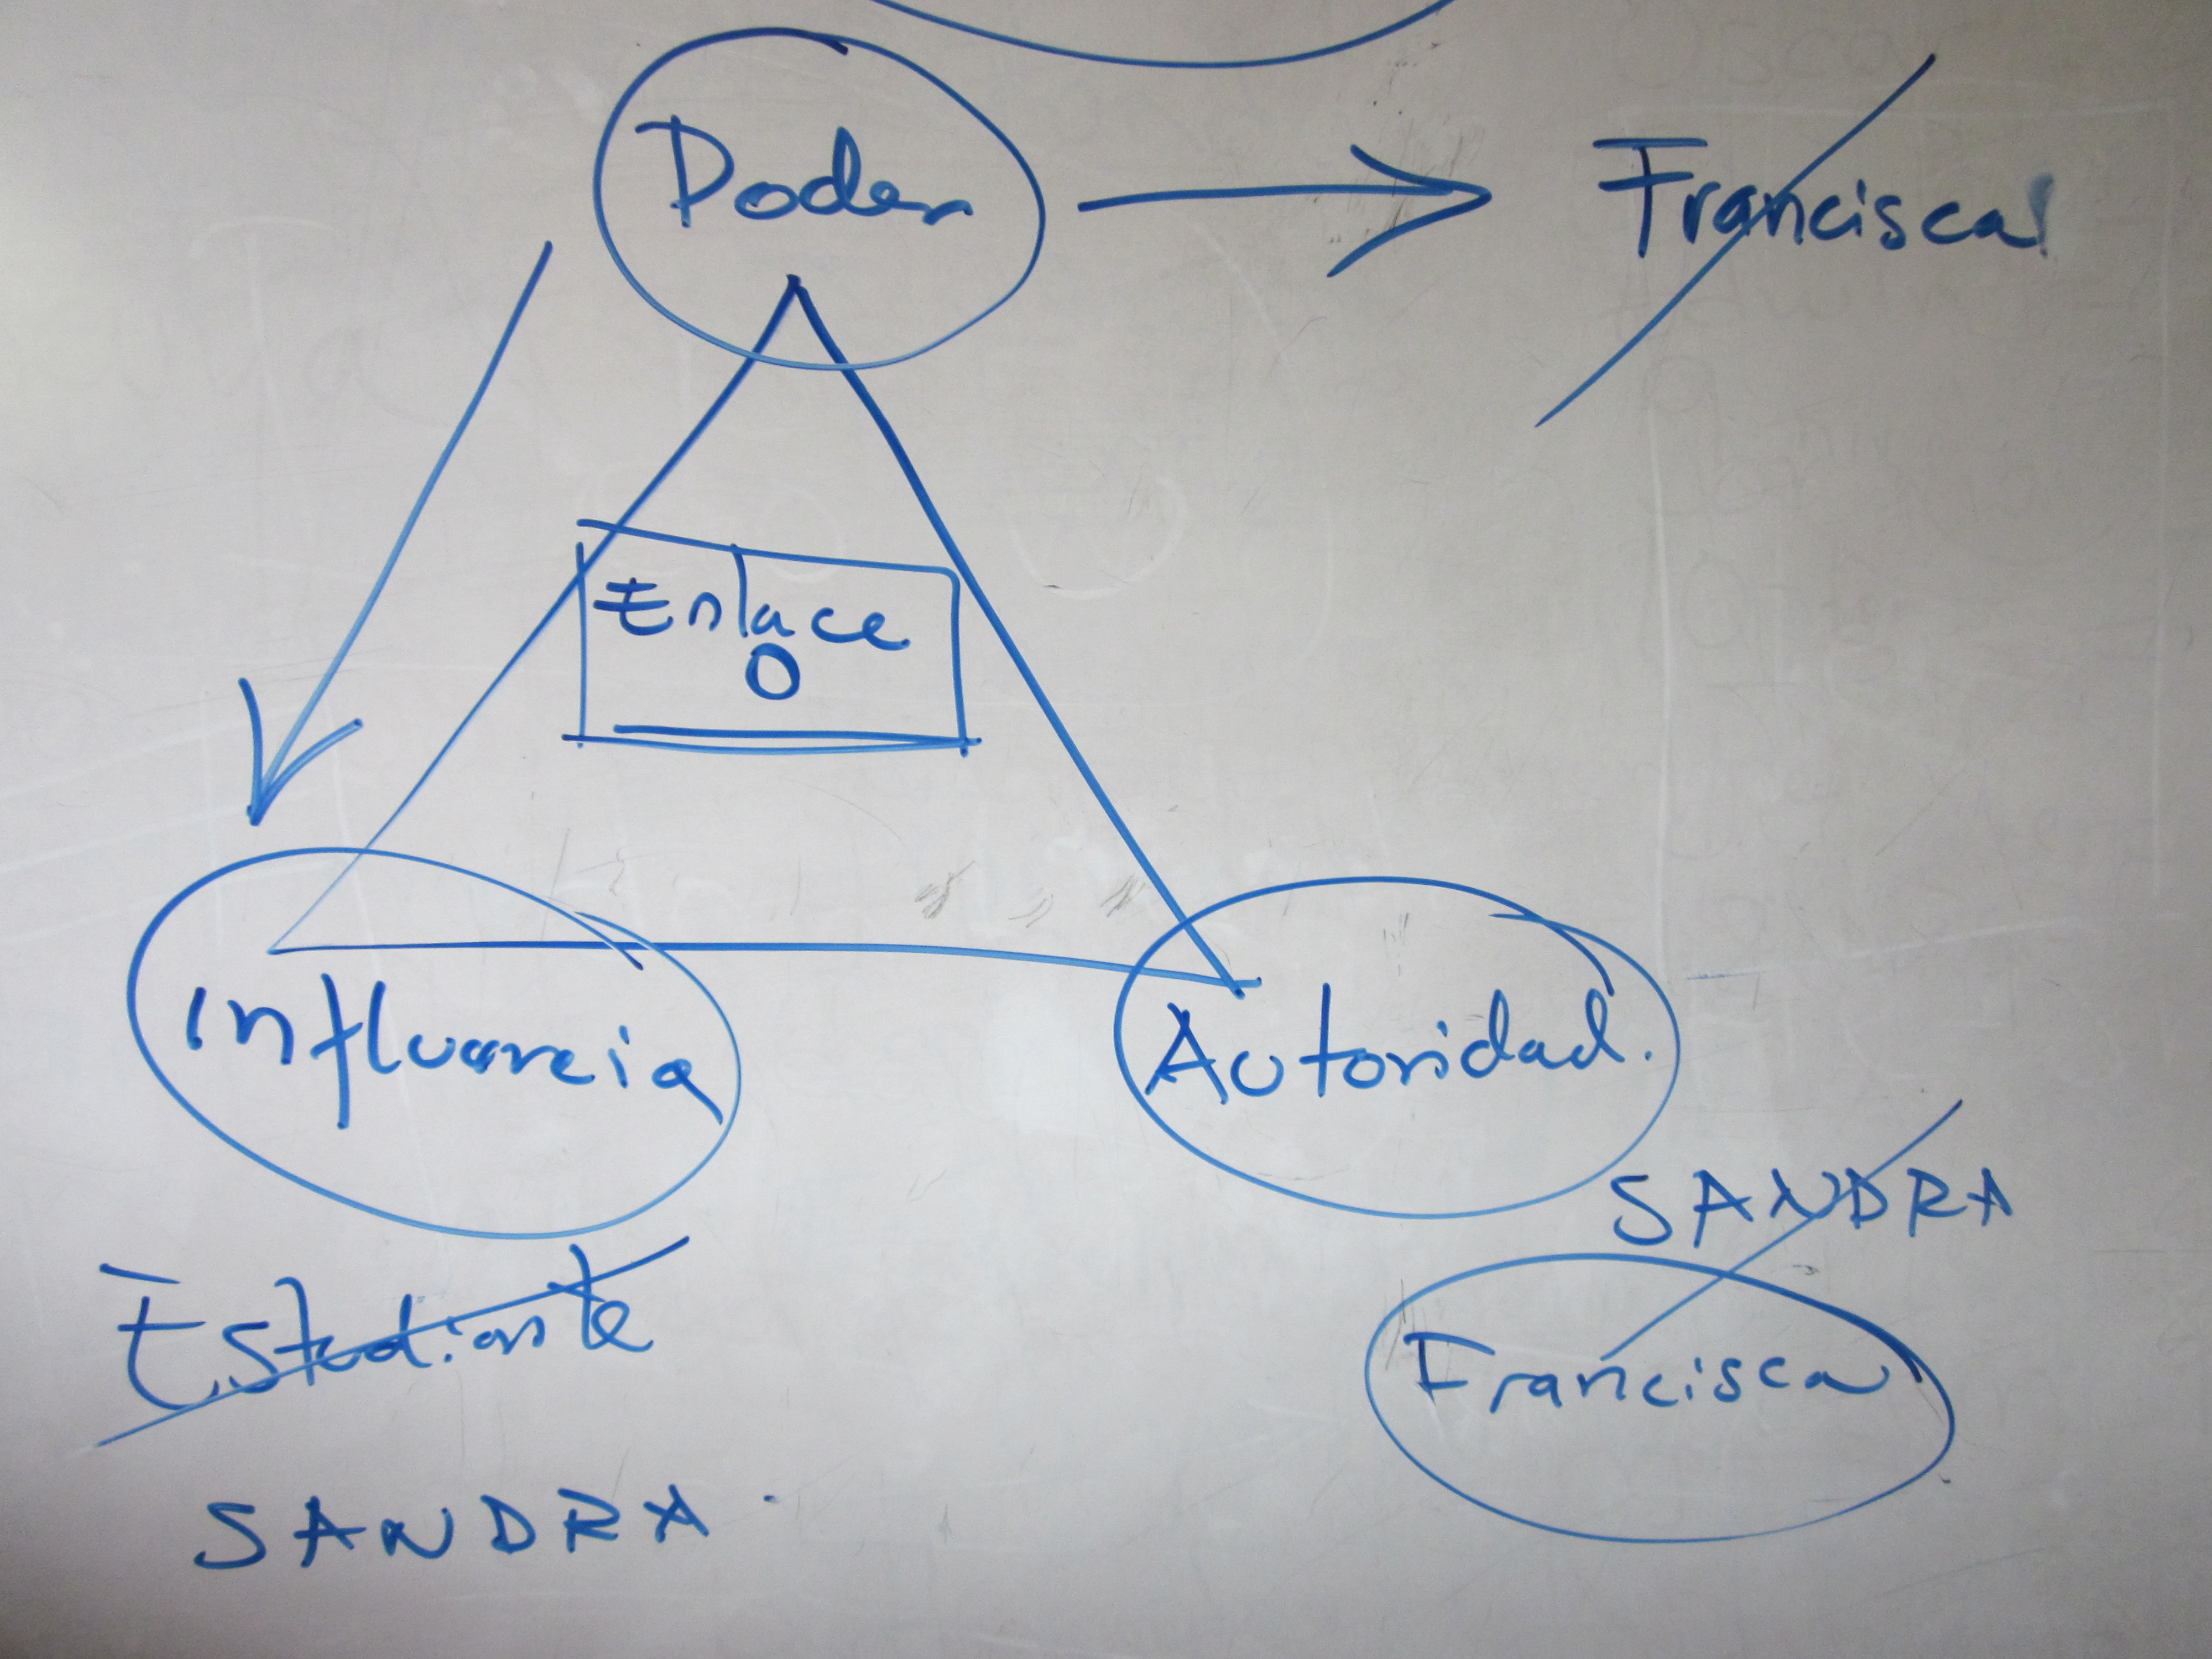 Poder
Francisca
Enlace
O
Influencia
Autoridad.
SANDRA
Estudiante
Francisca
SANDRA